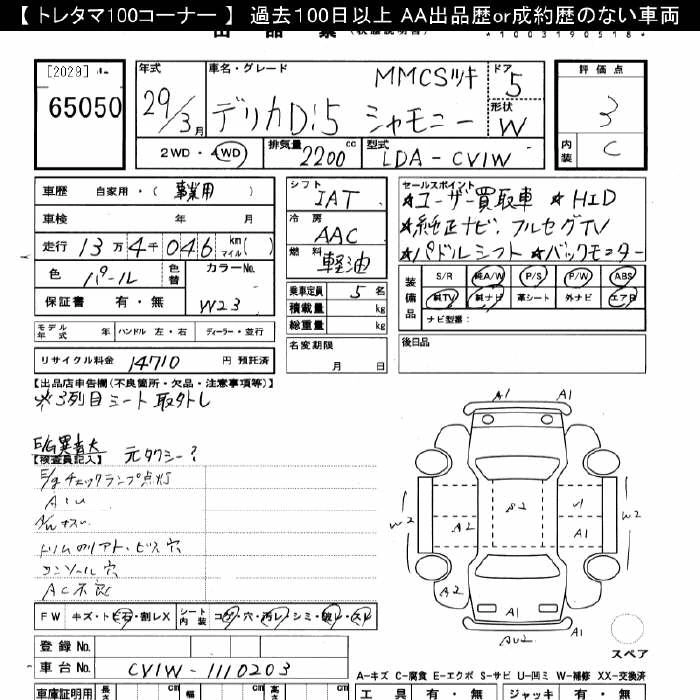 【 トレタマ100コーナー 】 過去100日以上 AA出品歴or成約歴のない車両
[2029]
65050
年式
29/3月
車名・グレード
MMCSツキ
デリカD:5 シャモニー
ドア
5
形状
W
2WD・4WD
排気量
2200cc
型式
LDA-CV1W
評価点
3
内装
C
車歴 自家用・( 事業用 )
車検 年 月
走行 13万4千046 km マイル( )
色 パール 色替
カラーNo.
W23
保証書 有・無
モデル年式 年 ハンドル 左・右 ディーラー・並行
リサイクル料金 14710 円 預託済
シフト
IAT
冷房
AAC
燃料
軽油
乗車定員 5名
積載量 kg
総重量 kg
名変期限
月 日
セールスポイント
★ユーザー買取車 ★HID
★純正ナビ、フルセグTV
★パドルシフト ★バックモニター
装備品
S/R 純A/W P/S P/W ABS
純TV 純ナビ 革シート 外ナビ エアB
ナビ型番:
後日品
【出品店申告欄(不良箇所・欠品・注意事項等)】
※3列目シート取外し
E/G異音大
【検査員記入】
元タクシー?
E/gチェックランプ点灯
A1U
A/Wキズ
トリムのリアト・ビス穴
コンソール穴
AC不良
FW キズ・トビ石・割レX
シート内装 コゲ・穴・汚レ・シミ・破レ・スレ
登録No.
車台No. CV1W-1110203
A1
A1
S2
W2
A2
A2
A1
W2
A1
A1
AU2
スペア
A-キズ C-腐食 E-エクボ S-サビ U-凹ミ W-補修 XX-交換済
車庫証明用 長さ cm 幅 cm cm
工具 有・無 ジャッキ 有・無